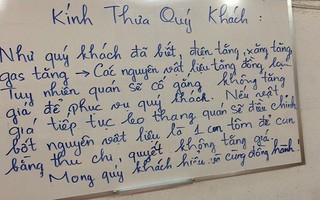 Kính Thưa Quý Khách :
Như quý khách đã biết, điện tăng, xăng tăng,
gas tăng → Các nguyên vật liệu tăng đồng loạt
Tuy nhiên quán sẽ cố gắng không tăng
giá để phục vụ quý khách. Nếu vật
giá tiếp tục leo thang quán sẽ điều chỉnh
bớt nguyên vật liệu là 1 con tôm để cân
bằng thu chi, quyết không tăng giá
Mong quý khách hiểu và cùng đồng hành!